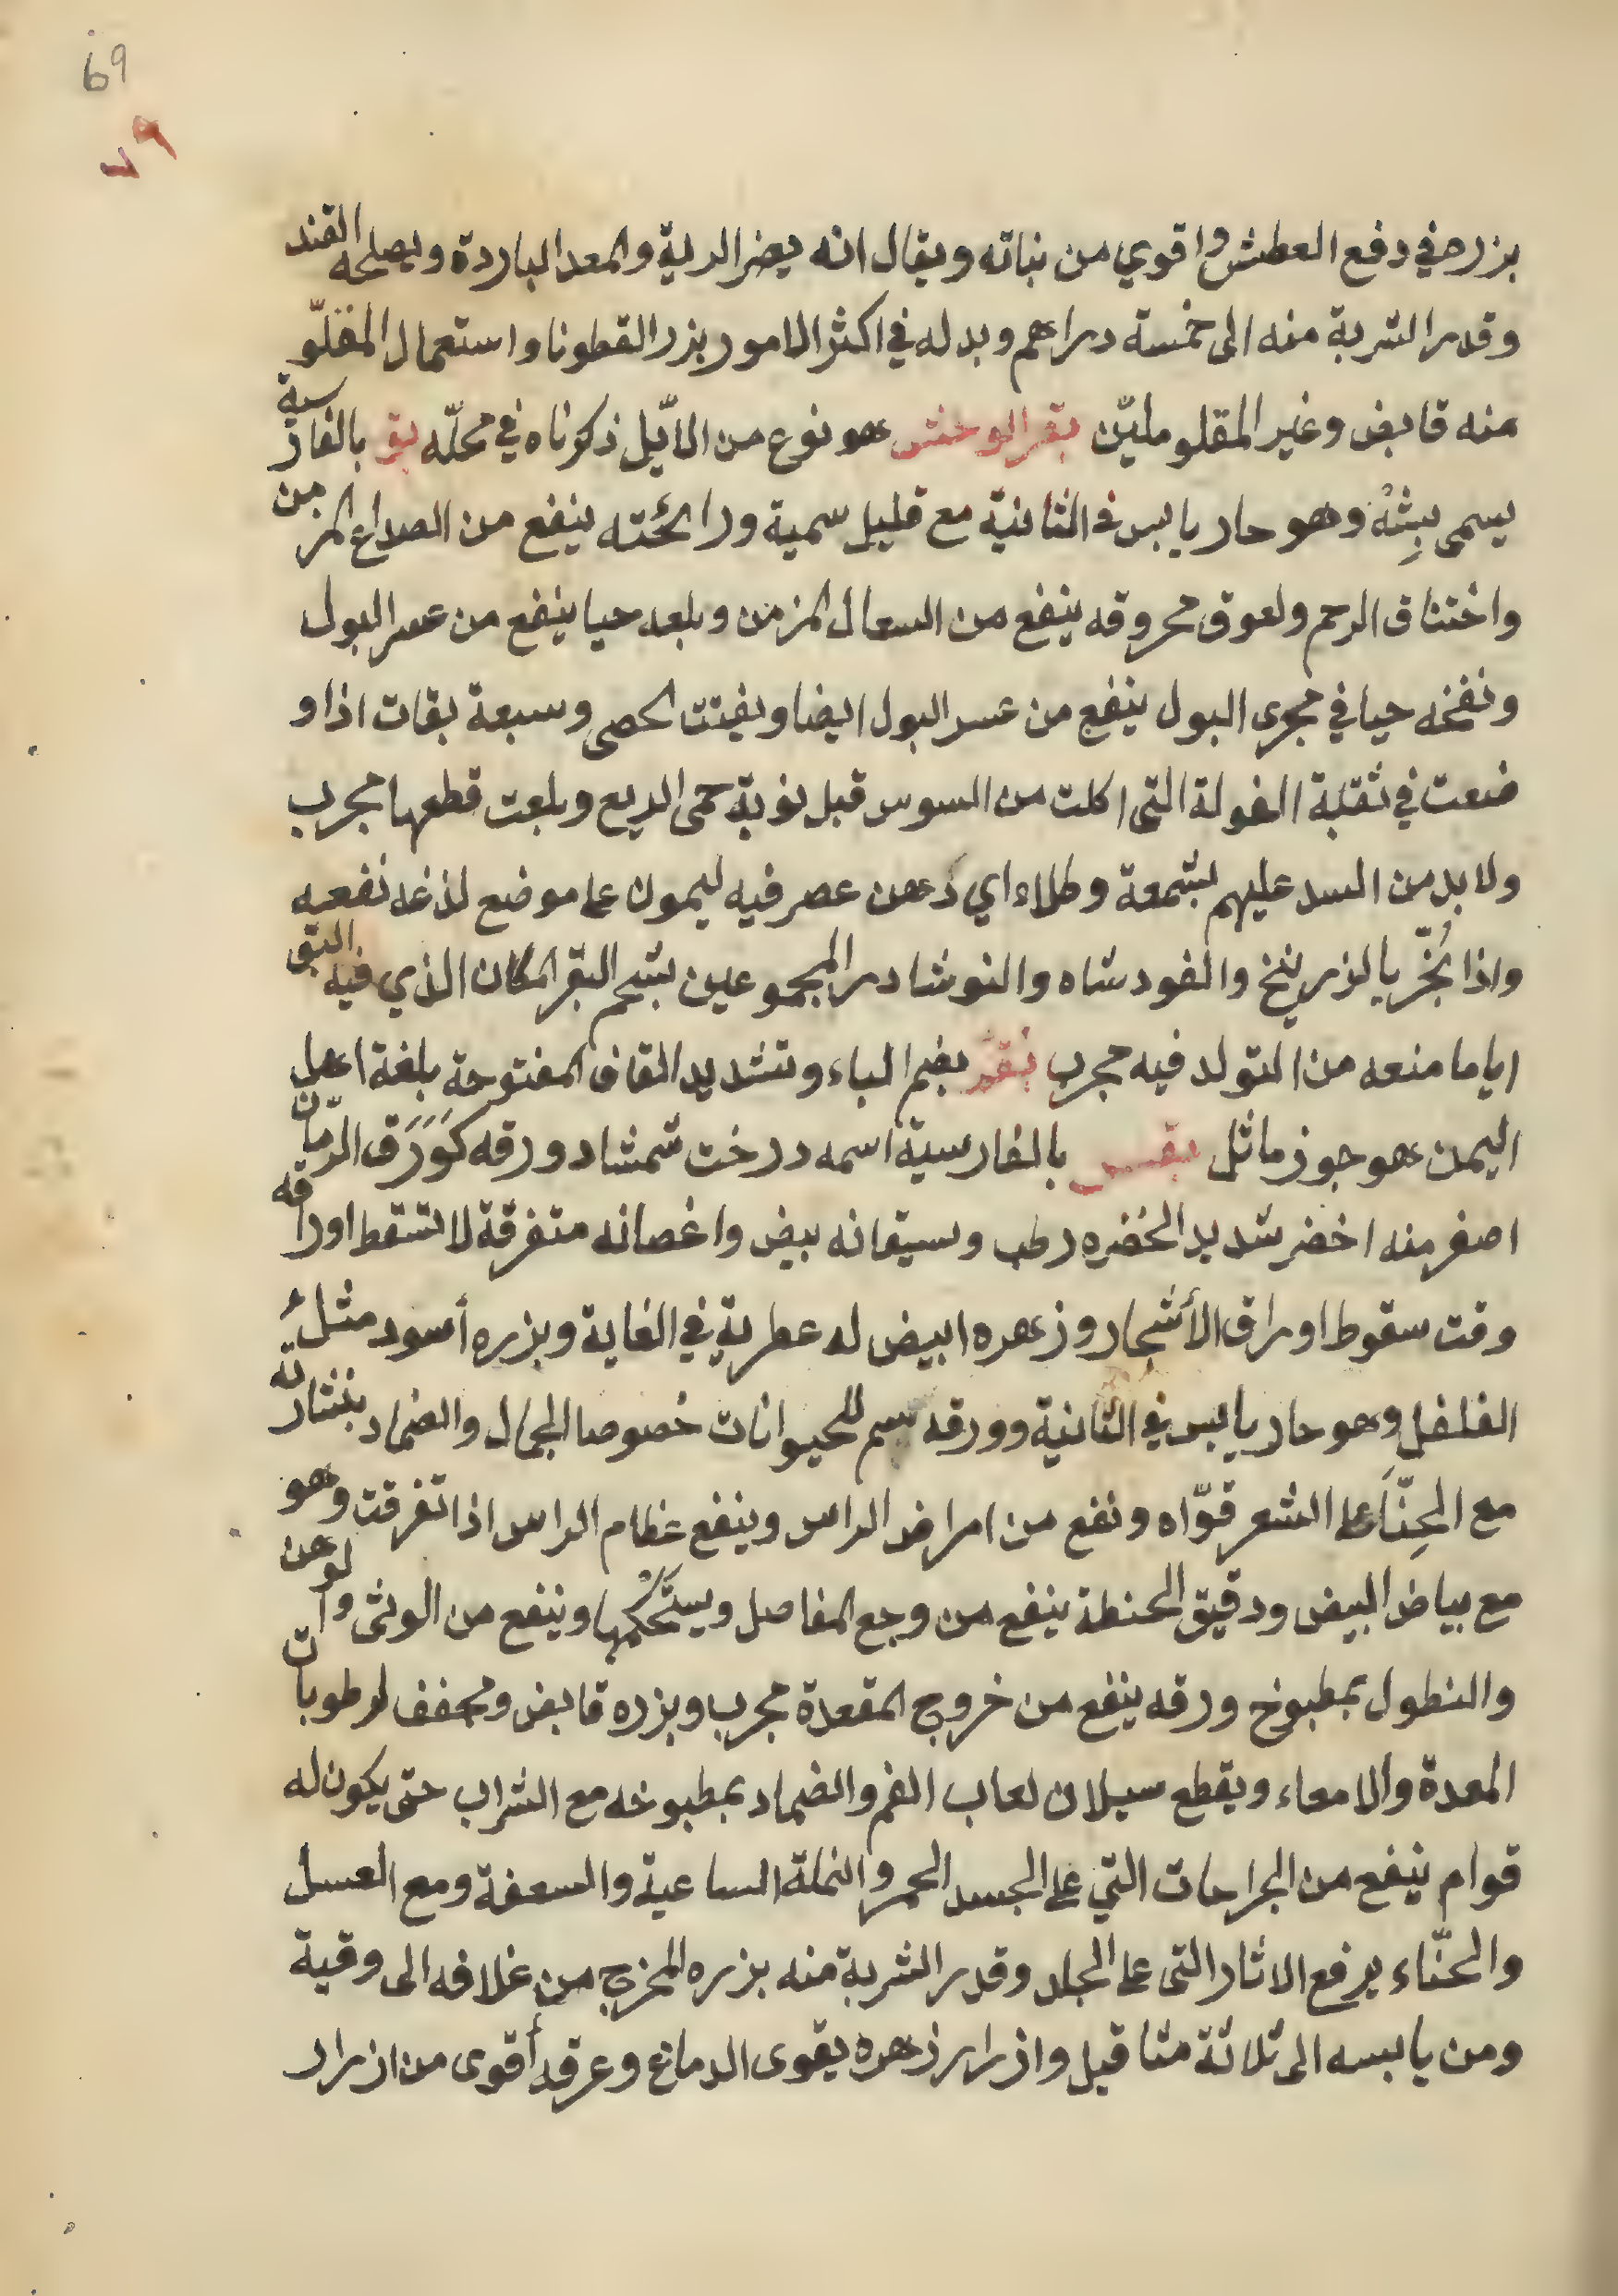 69
٧٩
بزره في دفع العطش واقوي من نباته ويقال انه يضر الرية والمعد الباردة ويصلحه القند
وقدر الشربة منه الى خمسة دراهم وبدله في اكثر الامور بزر القطونا واستعمال المقلّو
منه قابض وغير المقلو مليّن بقر الوحش هو نوع من الايّل ذكرناه في محلّه بق بالفارسية
يسمى بِشْهْ وهو حار يابس في الثانية مع قليل سمية ورائحته ينفع من الصداع المزمن
واختناق الرحم ولعوق محروقه ينفع من السعال المزمن وبلعه حيا ينفع من عسر البول
ونفخه حيا في مجرى البول ينفع من عسر البول ايضا ويفتت الحصى وسبعة بقات اذا و
ضعت في ثقبة الفولة التي اكلت من السوس قبل نوبة حمى الربع وبلعت قطعها مجرب
ولا بد من السد عليهم بشمعة وطلاء اي دهن عصر فيه ليمون على موضع لذغه نفعه
واذا بُخّر بالزرنيخ والفودشاه والنوشادر المجموعين بشحم البقر المكان الذي فيه البق
اياما منعه من التولد فيه مجرب بُقّم بضم الباء وتشديد القاف المفتوحة بلغة اهل
اليمن هو جوز ماثل بقس بالفارسية اسمه درخت شمشاد ورقه كَوَرَق الرمّان
اصغر منه اخضر شديد الخضره رطب وسيقانه بيض واغصانه متفرقة لا تسقط اوراقه
وقت سقوط اوراق الأشجار وزهره ابيض له عطرية في الغاية وبزره أسود مثلُ
الفلفل وهو حار يابس في الثانية وورقه سم للحيوانات خصوصا الجمال والضماد بنشارته
مع الحِنّاء على الشعر قوّاه ونفع من امراض الراس وينفع عظام الراس اذا تفرقت وهو
مع بياض البيض ودقيق الحنطة ينفع من وجع المفاصل ويستحكمها وينفع من الوثى والوهن
والنطول بمطبوخ ورقه ينفع من خروج المقعدة مجرب وبزره قابض ومجفف لرطوبات
المعدة والامعاء ويقطع سيلان لعاب الفم والضماد بمطبوخه مع الشراب حتى يكون له
قوام ينفع من الجراحات التي على الجسد الحمر والنملة الساعية والسعفة ومع العسل
والحنّاء يرفع الاثار التى على الجلد وقدر الشربة منه بزره المخرج من غلافه الى وقية
ومن يابسه الى ثلاثة مثاقيل وازرار زهره يقوى الدماغ وعرقه أقوى من ازرار